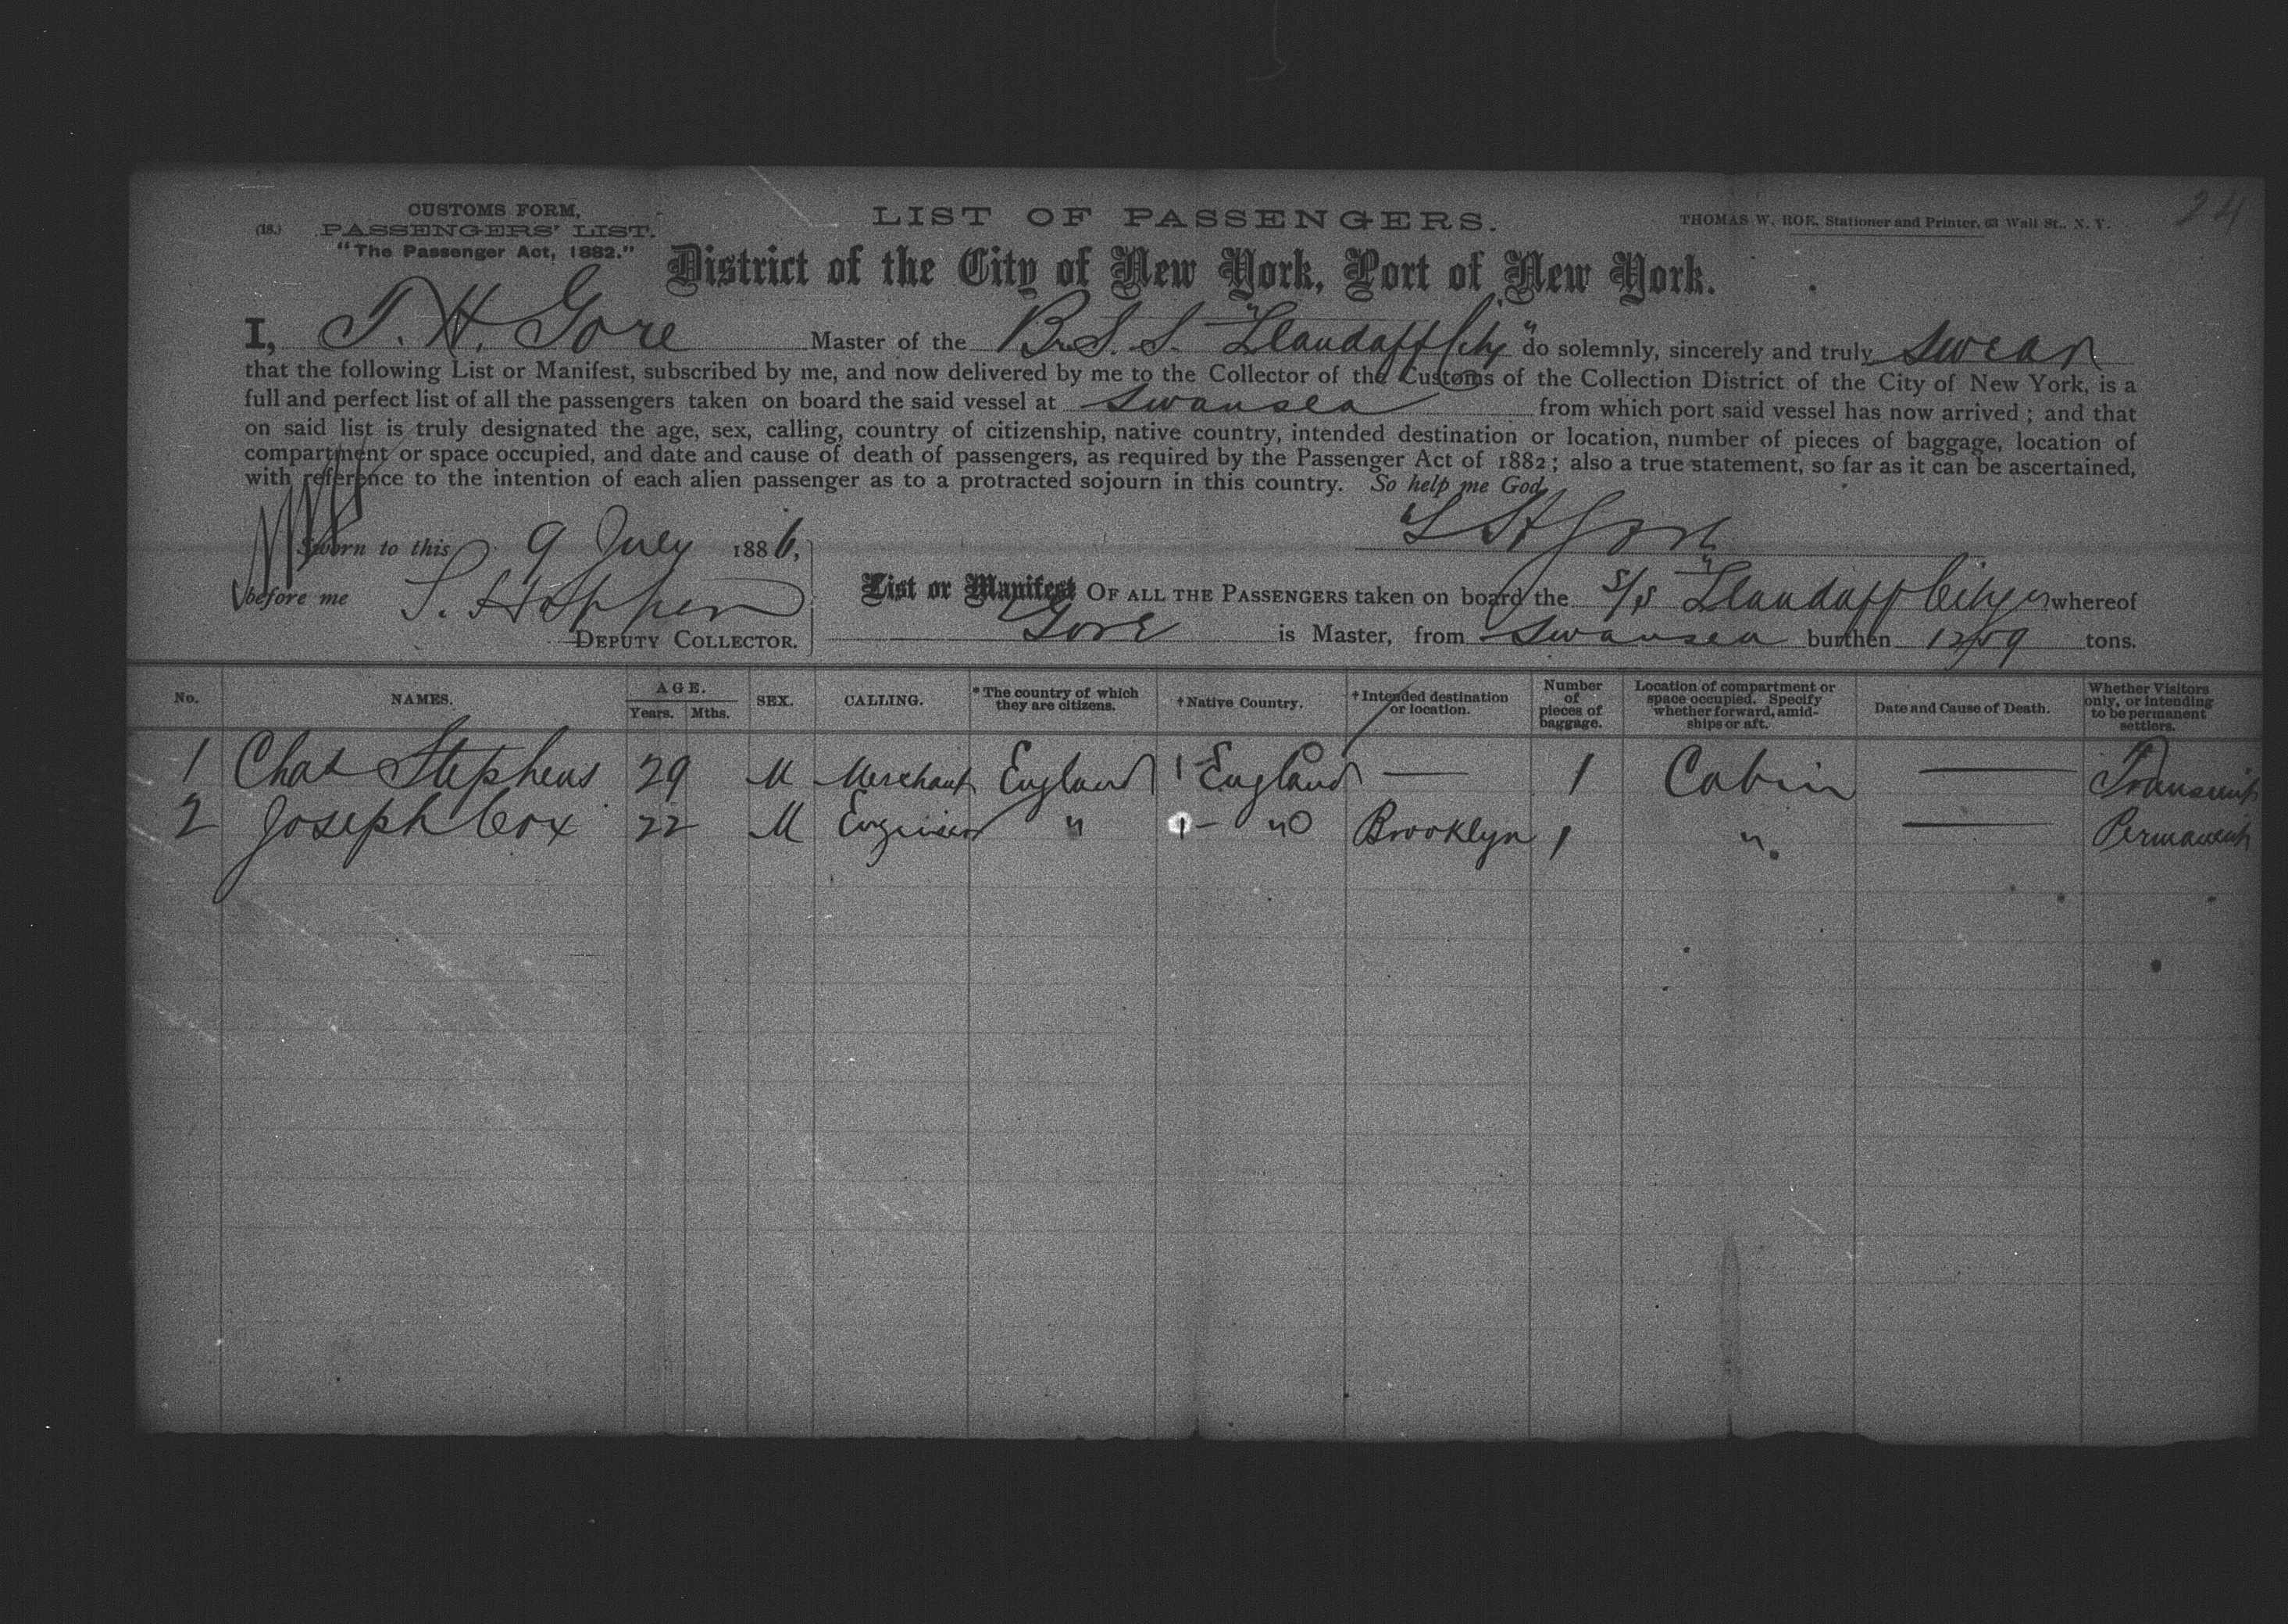 24
CUSTOMS FORM,
(18.) PASSENGERS' LIST.
"The Passenger Act, 1882."
LIST OF PASSENGERS.
THOMAS W. ROE, Stationer and Printer, 63 Wall St., N. Y.
District of the City of New York, Port of New York.
I, T. H. Gore Master of the Br S. S. "Llandaff City" do solemnly, sincerely and truly swear
that the following List or Manifest, subscribed by me, and now delivered by me to the Collector of the Customs of the Collection District of the City of New York, is a
full and perfect list of all the passengers taken on board the said vessel at Swansea from which port said vessel has now arrived; and that
on said list is truly designated the age, sex, calling, country of citizenship, native country, intended destination or location, number of pieces of baggage, location of
compartment or space occupied, and date and cause of death of passengers, as required by the Passenger Act of 1882; also a true statement, so far as it can be ascertained,
with reference to the intention of each alien passenger as to a protracted sojourn in this country. So help me God
Sworn to this 9 July 1886,
before me S. Hoppen
DEPUTY COLLECTOR.
T H Gore
List or Manifest OF ALL THE PASSENGERS taken on board the S/S "Llandaff City" whereof
Gore is Master, from Swansea burthen 1259 tons.
No. NAMES. AGE. Years. Mths. SEX. CALLING. *The country of which they are citizens. †Native Country. †Intended destination or location. Number of pieces of baggage. Location of compartment or space occupied. Specify whether forward, amidships or aft. Date and Cause of Death. Whether Visitors only, or intending to be permanent settlers.
1 Chas Stephens 29 M Merchant England 1 England — 1 Cabin — Transient
2 Joseph Cox 22 M Engineer " 1 - " Brooklyn 1 " — Permanent